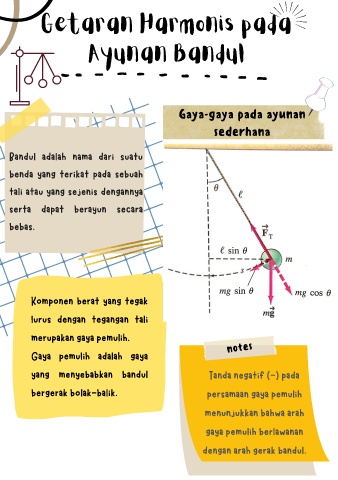 Getaran Harmonis pada
Ayunan Bandul
Gaya-gaya pada ayunan
sederhana
Bandul adalah nama dari suatu
benda yang terikat pada sebuah
tali atau yang sejenis dengannya
serta dapat berayun secara
bebas.
θ
ℓ
F⃗T
ℓ sin θ
m
s
mg sin θ
mg cos θ
mg⃗
Komponen berat yang tegak
lurus dengan tegangan tali
merupakan gaya pemulih.
Gaya pemulih adalah gaya
yang menyebabkan bandul
bergerak bolak-balik.
notes
Tanda negatif (-) pada
persamaan gaya pemulih
menunjukkan bahwa arah
gaya pemulih berlawanan
dengan arah gerak bandul.